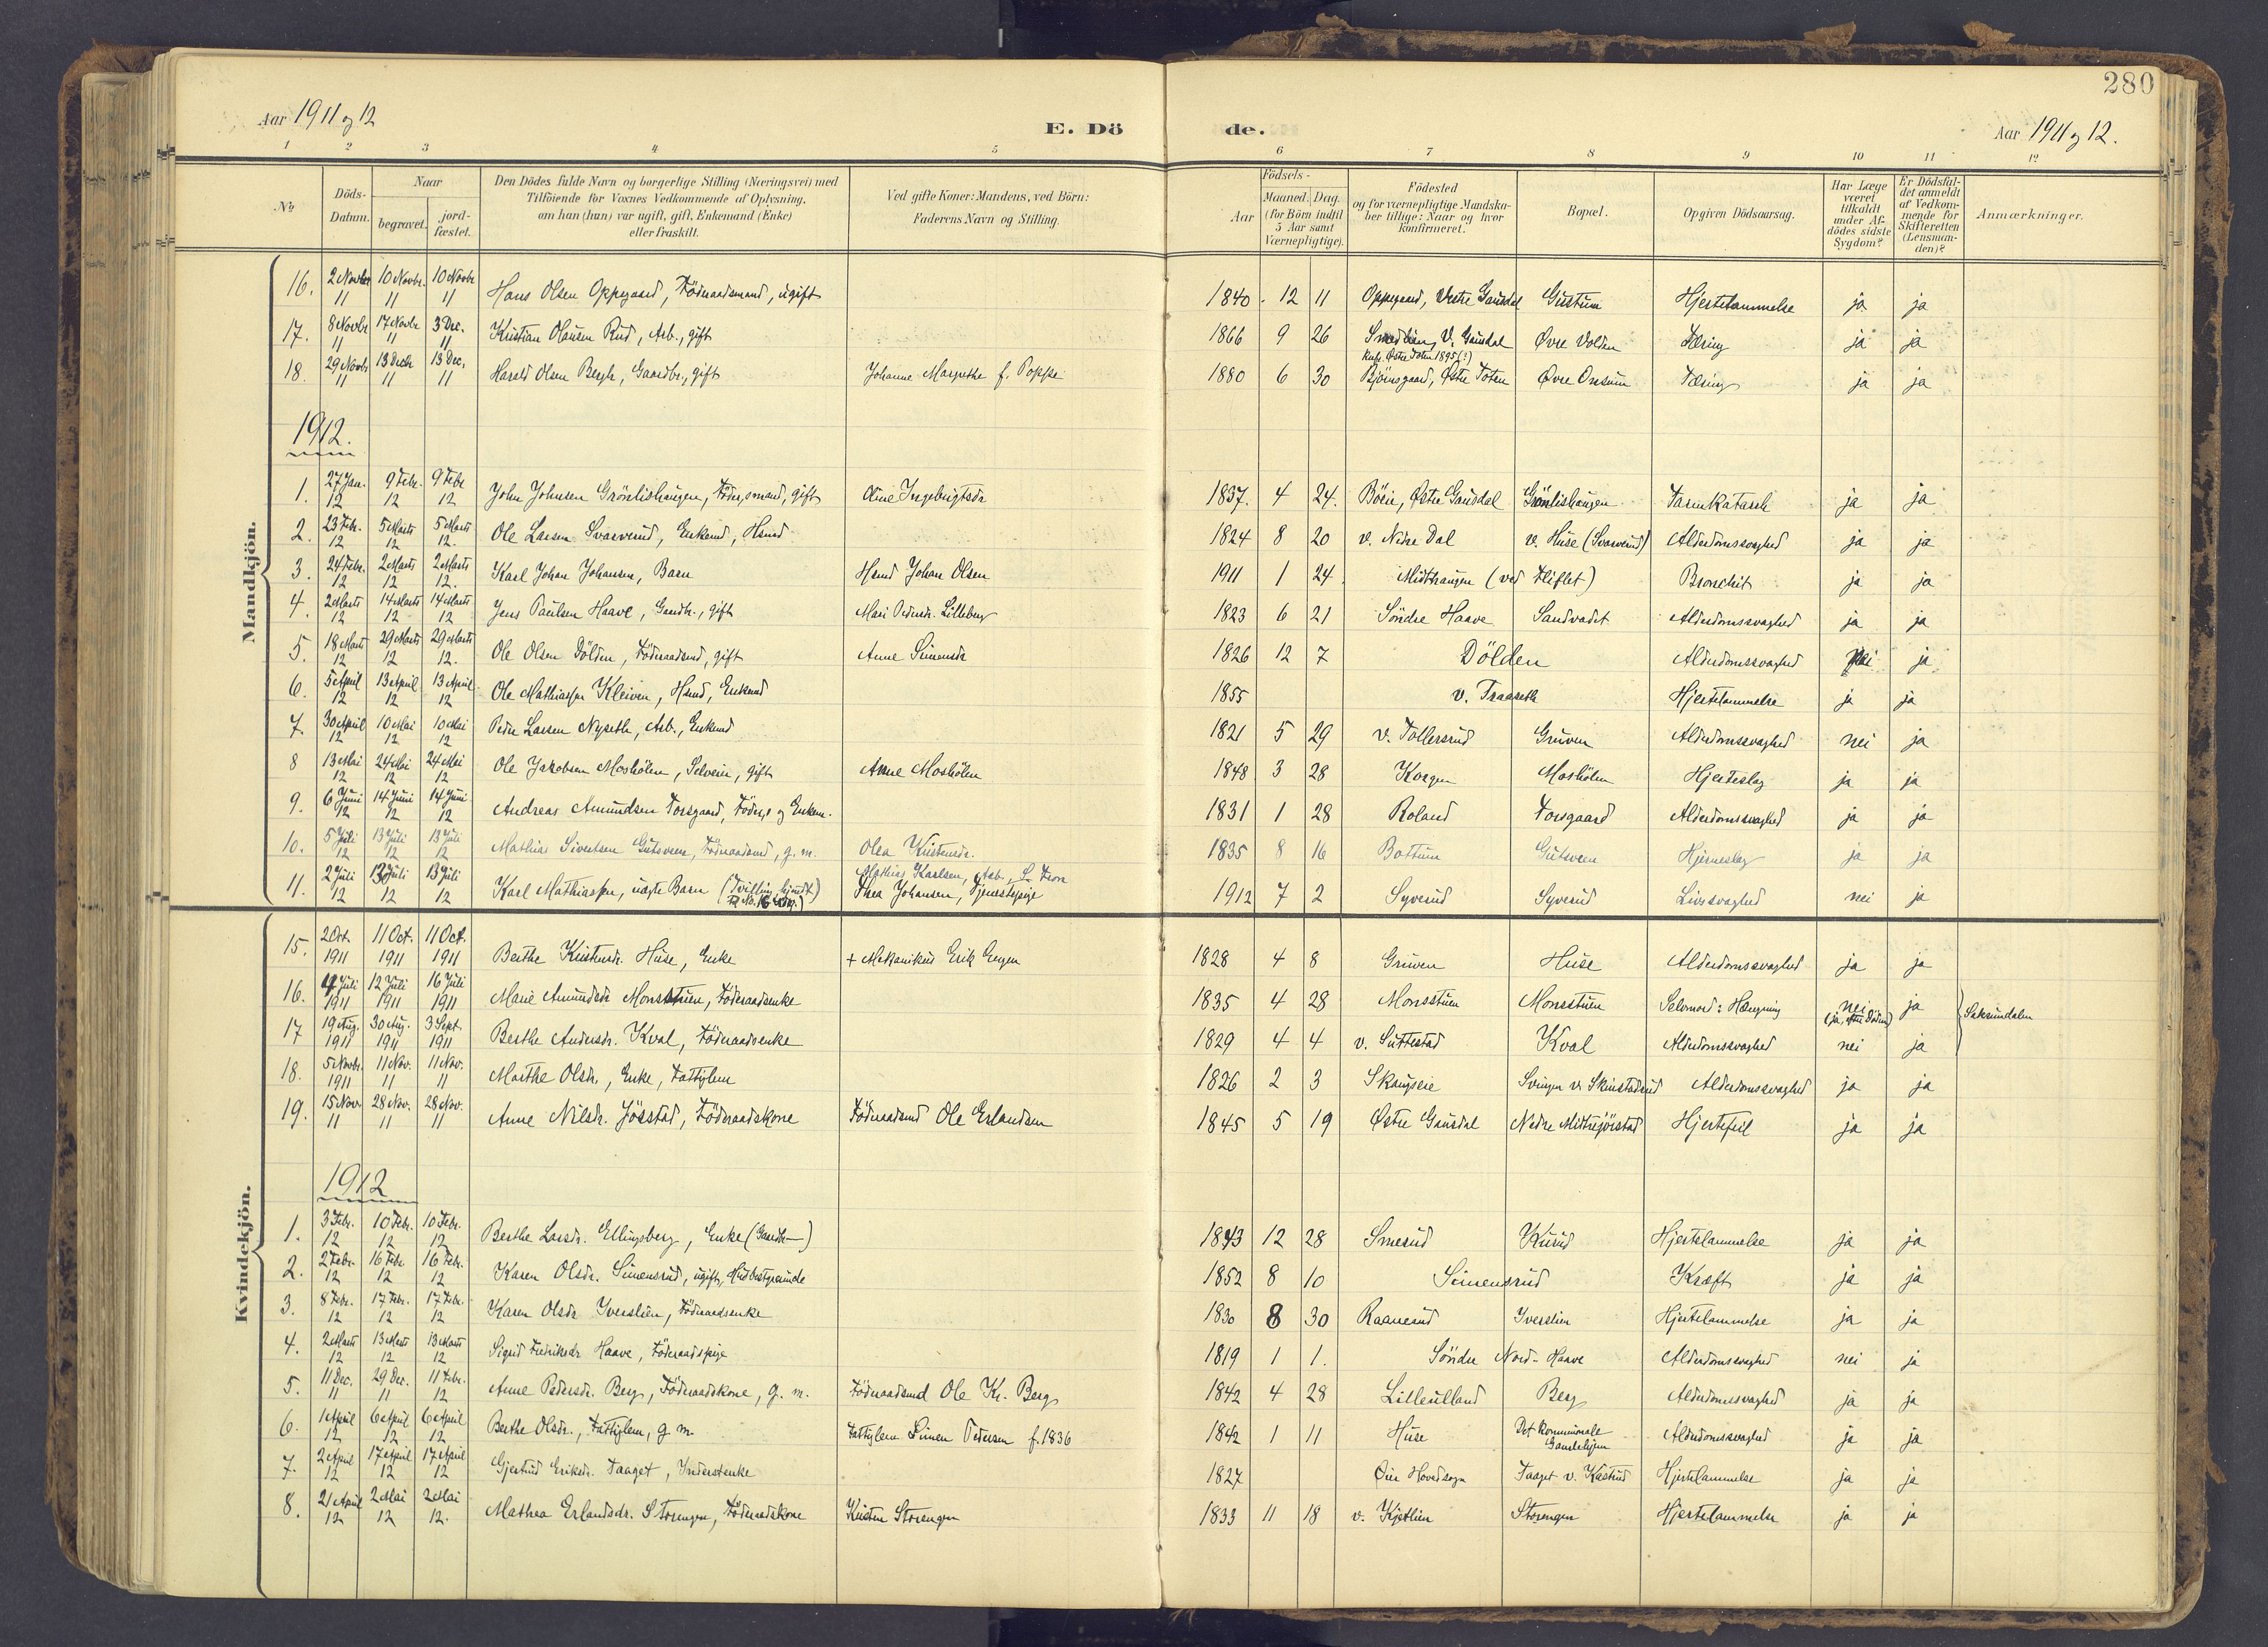 280
Aar 1911 og 12
E. Dö
de.
Aar 1911 og 12.
1 2 3 4 5 6 7 8 9 10 11 12
No
Döds-Datum.
Naar
begravet.
jord-fæstet.
Den Dödes fulde Navn og borgerlige Stilling (Næringsvei) med
Tilföiende for Voxnes Vedkommende af Oplysning,
om han (hun) var ugift, gift, Enkemand (Enke)
eller fraskilt.
Ved gifte Koner: Mandens, ved Börn:
Faderens Navn og Stilling.
Födsels-
Aar
Maaned. Dag.
(for Börn indtil
5 Aar samt
Værnepligtige).
Födested
og for værnepligtige Mandska-
ber tillige: Naar og hvor
konfirmeret.
Bopæl.
Opgiven Dödsaarsag.
Har Læge
været
tilkaldt
under Af-
dödes sidste
Sygdom?
Er Dödsfal-
det anmeldt
af Vedkom-
mende for
Skifteretten
(Lensman-
den)?
Anmærkninger.
Mandkjön.
16. 2 Novbr 11 10 Novbr. 11 10 Novbr 11 Hans Olsen Oppegaard, Föderaadsmand, ugift 1840 12 11 Oppegaard, Vestre Gausdal Gustum Hjertelammelse ja ja
17. 8 Novbr 11 17 Novbr 11 3 Dec. 11 Kristian Olausen Rud, Arb., gift 1866 9 26 Smedlien, V. Gausdal Øvre Volden Tæring ja ja
18. 29 Novbr 11 13 Decbr 11 13 Dec. 11 Harald Olsen Bergh, Gaardbr., gift Johanne Margrethe f. Poppe 1880 6 30 Konf. Østre Toten 1895 (?) Bjönsgaard, Østre Toten Øvre Onsum Tæring ja ja
1912.
1. 27 Jan. 12 9 Febr. 12 9 Febr 12 John Johnsen Grönlishaugen, Föder,smand, gift Oline Ingebrigtsdr 1837. 4 24. Böen, Østre Gausdal Grönlishaugen Tarmkatarrh ja ja
2. 23 Febr. 12 5 Marts 12 5 Marts 12. Ole Larsen Svarverud, Enkemd, Hsmd 1824 8 20 v. Nedre Dal v. Huse (Svarverud) Alderdomssvaghed ja ja
3. 24 Febr. 12 2 Marts 12 2 Marts 12. Karl Johan Johansen, Barn Hsmd Johan Olsen 1911 1 24. Midthaugen (ved Fliflet) Bronchit ja ja
4. 2 Marts 12 14 Marts 12 14 Marts 12 Jens Paulsen Haave, Gaardbr., gift Mari Pedersdr. Lilleberg 1823 6 21 Söndre Haave Sandvadet Alderdomssvaghed ja ja
5. 18 Marts 12 29 Marts 12 29 Marts 12. Ole Olsen Dölden, Föderaadsmd, gift Anne Simensdr 1826 12 7 Dölden Alderdomssvaghed nei ja
6. 5 April 12 13 April 12 13 April 12 Ole Mathiassen Kleiven, Hsmd, Enkemd 1855 v. Traaseth Hjertelammelse ja ja
7. 30 April 12 10 Mai 12 10 Mai 12 Peder Larsen Nyseth, Arb., Enkemd 1821 5 29 v. Tollersrud Gruven Alderdomssvaghed nei ja
8 13 Mai 12 24 Mai 12 24 Mai 12 Ole Jakobsen Moshölen, Selveier, gift Anne Moshölen 1848 3 28 Korgen Moshölen Hjerteslag ja ja
9. 6 Juni 12 14 Juni 12 14 Juni 12 Andreas Amundsen Torsgaard, Föder,s og Enkem. 1831 1 28 Roland Torsgaard Alderdomssvaghed ja ja
10. 5 Juli 12 13 Juli 12 13 Juli 12 Mathias Sivertsen Gutsveen, Föderaadsmd, g. m. Olea Kristensdr. 1835 8 16 Bottum Gutsveen Hjerneslag ja ja
11. 2 Juli 12 13 Juli 12 13 Juli 12 Karl Mathiassen, uægte Barn (Tvilling hjemdt. No. 16) Mathias Karlsen, Arb., S. Fron
Thea Johansen, Tjenestepige 1912 7 2 Syverud Syverud Livssvaghed nei ja
Kvindekjön.
15. 2 Oct. 1911 11 Oct. 1911 11 Oct. 1911 Berthe Kristensdr. Huse, Enke + Mekanikus Erik Engen 1828 4 8 Gruven Huse Alderdomssvaghed ja ja
16. 4 Juli 1911 12 Juli 1911 16 Juli 1911 Marie Amundsdr Monsstuen, Föderaadsenke 1835 4 28 Monsstuen Monsstuen Selvmord: Hængning nei (ja, efter Döden) ja Saksumdalen
17 19 Aug. 1911 30 Aug. 1911 3 Sept. 1911 Berthe Andersdr. Kval, Föderaadsenke 1829 4 4 v. Suttestad Kval Alderdomssvaghed nei ja
18. 5 Novbr. 1911 11 Nov. 11 11 Nov. 11 Marthe Olsdr., Enke, Fattiglem 1826 2 3 Skaugseie Svingen v. Skinstadrud Alderdomssvaghed ja ja
19. 15 Nov 11 28 Nov. 11 28 Nov. 11 Anne Nilsdr. Jösstad, Föderaadskone Föderaadsmd Ole Erlandsen 1845 5 19 Østre Gausdal Nedre Midtre Jörstad Hjertefeil ja ja
1912
1. 3 Febr. 12 10 Febr. 12 10 Febr. 12 Berthe Larsdr. Ellingsberg, Enke (Gaardbr—) 1843 12 28 Smerud Kurud Hjertelammelse ja ja
2. 2 Febr. 12 16 Febr 12 16 Febr. 12 Karen Olsdr. Simensrud, ugift, Husbestyrerinde 1852 8 10 Simensrud Kræft ja ja
3. 8 Febr. 12 17 Febr. 12 17 Febr. 12 Karen Olsdr Iverslien, Föderaadsenke 1830 8 30 Raanerud Iverslien Hjertelammelse ja ja
4. 2 Marts 12 13 Marts 12 13 Marts 12 Sigrid Fredriksdr Haave, Föderaadspige 1819 1 1. Söndre Nord-Haave Alderdomssvaghed nei ja
5. 11 Dec. 11 29 Dec. 11 11 Febr. 12 Anne Pedersdr. Berg, Föderaadskone, g. m. Föderaadsmd Ole Kr. Berg 1842 4 28 Lilleulland Berg Alderdomssvaghed ja ja
6. 1 April 12 6 April 12 6 April 12 Berthe Olsdr., Fattiglem, g m. Fattiglem Simen Pedersen f. 1836 1842 1 11 Huse Det kommunale Gamlehjem Alderdomssvaghed ja ja
7. 2 April 12 17 April 12 17 April 12 Gjertrud Eriksdr. Taaget, Inderstenke 1827 Öier Hovedsogn Taaget v. Kastrud Hjertelammelse ja ja
8. 21 April 12 2 Mai 12 2 Mai 12. Mathea Erlandsdr. Storengen, Föderaadskone Kristen Storengen 1833 11 18 v. Kjetlien Storengen Hjertelammelse ja ja